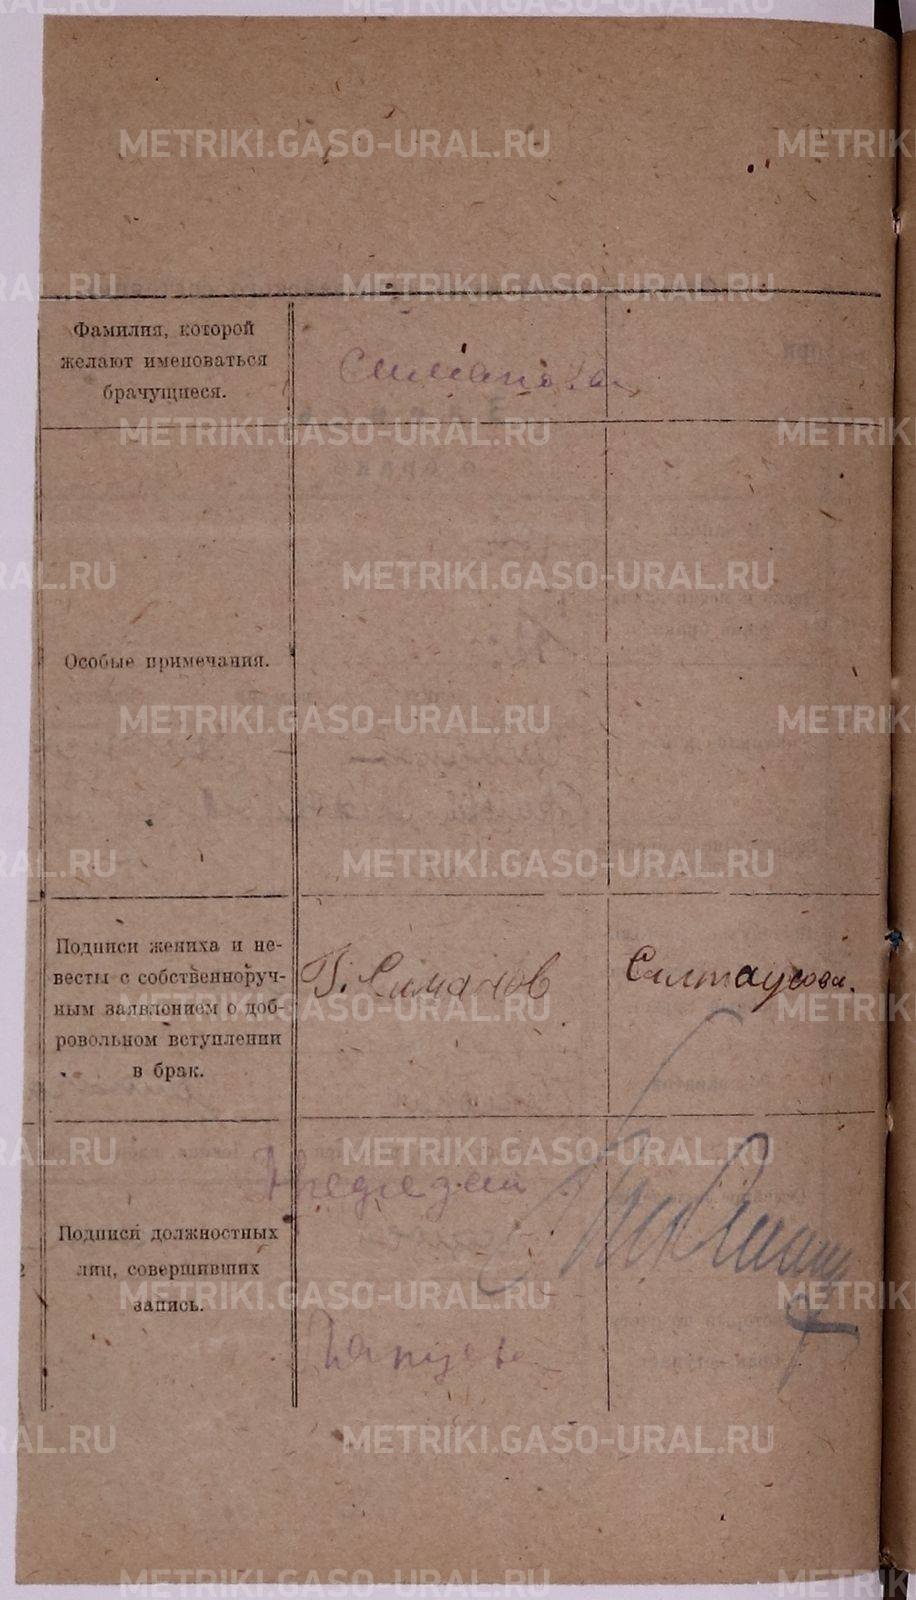 Фамилия, которой
желают именоваться
брачущиеся.
Симанова
Особые примечания.
Подписи жениха и не-
весты с собственноруч-
ным заявлением о доб-
ровольном вступлении
в брак.
Г. Симанов
Салтаусова.
Подписи должностных
лиц, совершивших
запись.
METRIKI.GASO-URAL.RU